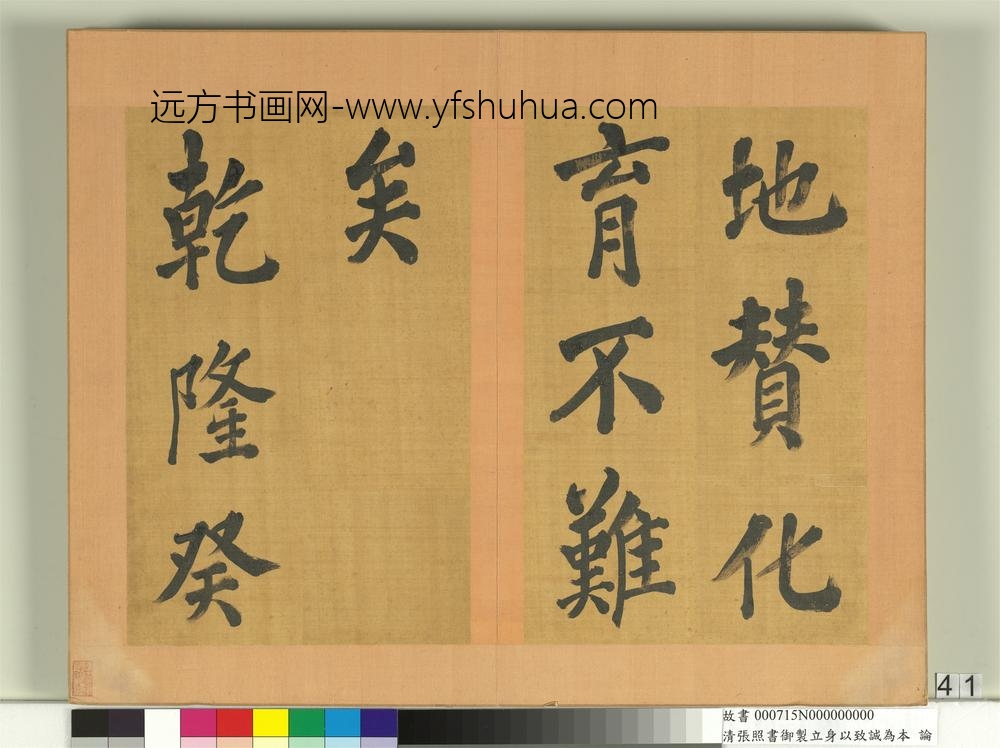 远方书画网-www.yfshuhua.com
地贊化
育不難
矣
乾隆癸
41
故書 000715N000000000
清張照書御製立身以致誠為本 論